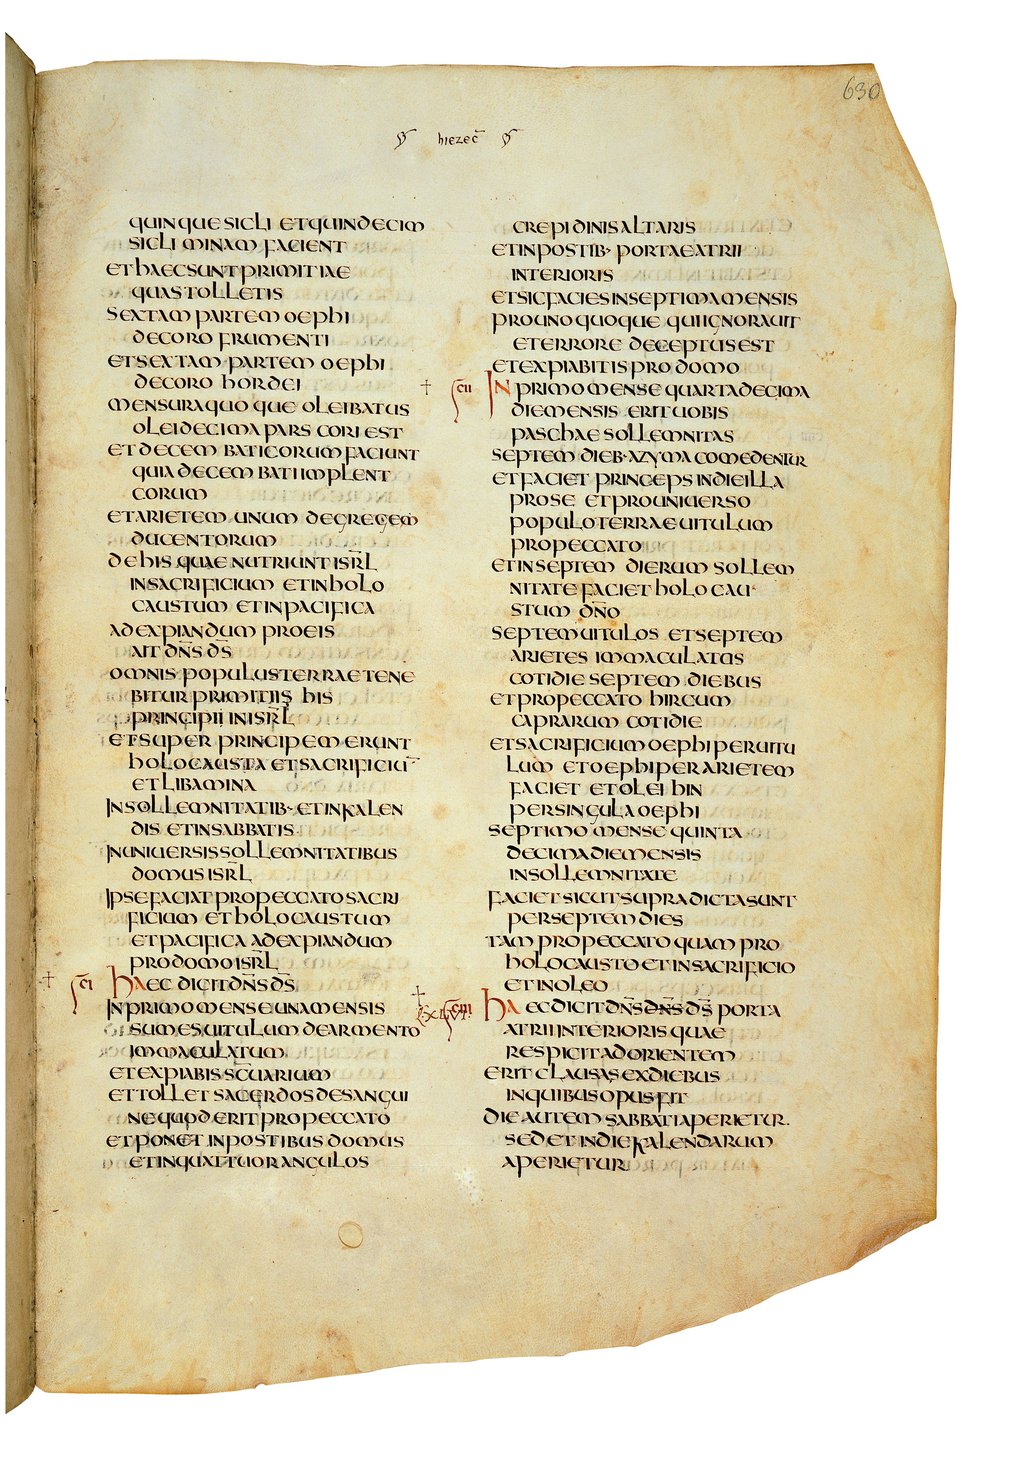 630
hiezec̄
quinque sicli et quindecim
sicli minam facient
et haec sunt primitiae
quas tolletis
sextam partem oephi
de coro frumenti
et sextam partem oephi
de coro hordei
mensura quoque olei batus
olei decima pars cori est
et decem bati corum faciunt
quia decem bati implent
corum
et arietem unum de grege em
ducentorum
de his quae nutriunt isr̄l
in sacrificium et in holo
caustum et in pacifica
ad expiandum pro eis
ait dn̄s d̄s
omnis populus terrae tene
bitur primitiis his
principi in isr̄l
et super principem erunt
holocausta et sacrificiu¯
et libamina
in sollemnitatib· et in kalen
dis et in sabbatis
in universis sollemnitatibus
domus isr̄l
ipse faciat pro peccato sacri
ficium et holocaustum
et pacifica ad expiandum
pro domo isr̄l
c̄i haec dicit dn̄s d̄s
in primo mense una mensis
sumes uitulum de armento
immaculatum
et expiabis sc̄uarium
et tollet sacerdos de sangui
ne quod erit pro peccato
et ponet in postibus domus
et in quattuor angulos
crepidinis altaris
et in postib· portae atrii
interioris
et sic facies in septima mensis
pro unoquoque qui ignorauit
et errore deceptus est
et expiabitis pro domo
c̄ii In primo mense quartadecima
die mensis erit uobis
paschae sollemnitas
septem dieb· azyma comedentur
et faciet princeps in die illa
pro se et pro uniuerso
populo terrae uitulum
pro peccato
et in septem dierum sollem
nitate faciet holocau
stum dn̄o
septem uitulos et septem
arietes immaculatus
cotidie septem diebus
et pro peccato hircum
caprarum cotidie
et sacrificium oephi per uitu
lum et oephi per arietem
faciet et olei hin
per singula oephi
septimo mense quinta
decima die mensis
in sollemnitate
faciet sicut supra dicta sunt
per septem dies
tam pro peccato quam pro
holocausto et in sacrificio
et in oleo
c̄iii haec dicit dn̄s dn̄s d̄s porta
atrii interioris quae
respicit ad orientem
erit clausa sex diebus
in quibus opus fit
die autem sabbati aperietur.
sed et in die kalendarum
aperietur